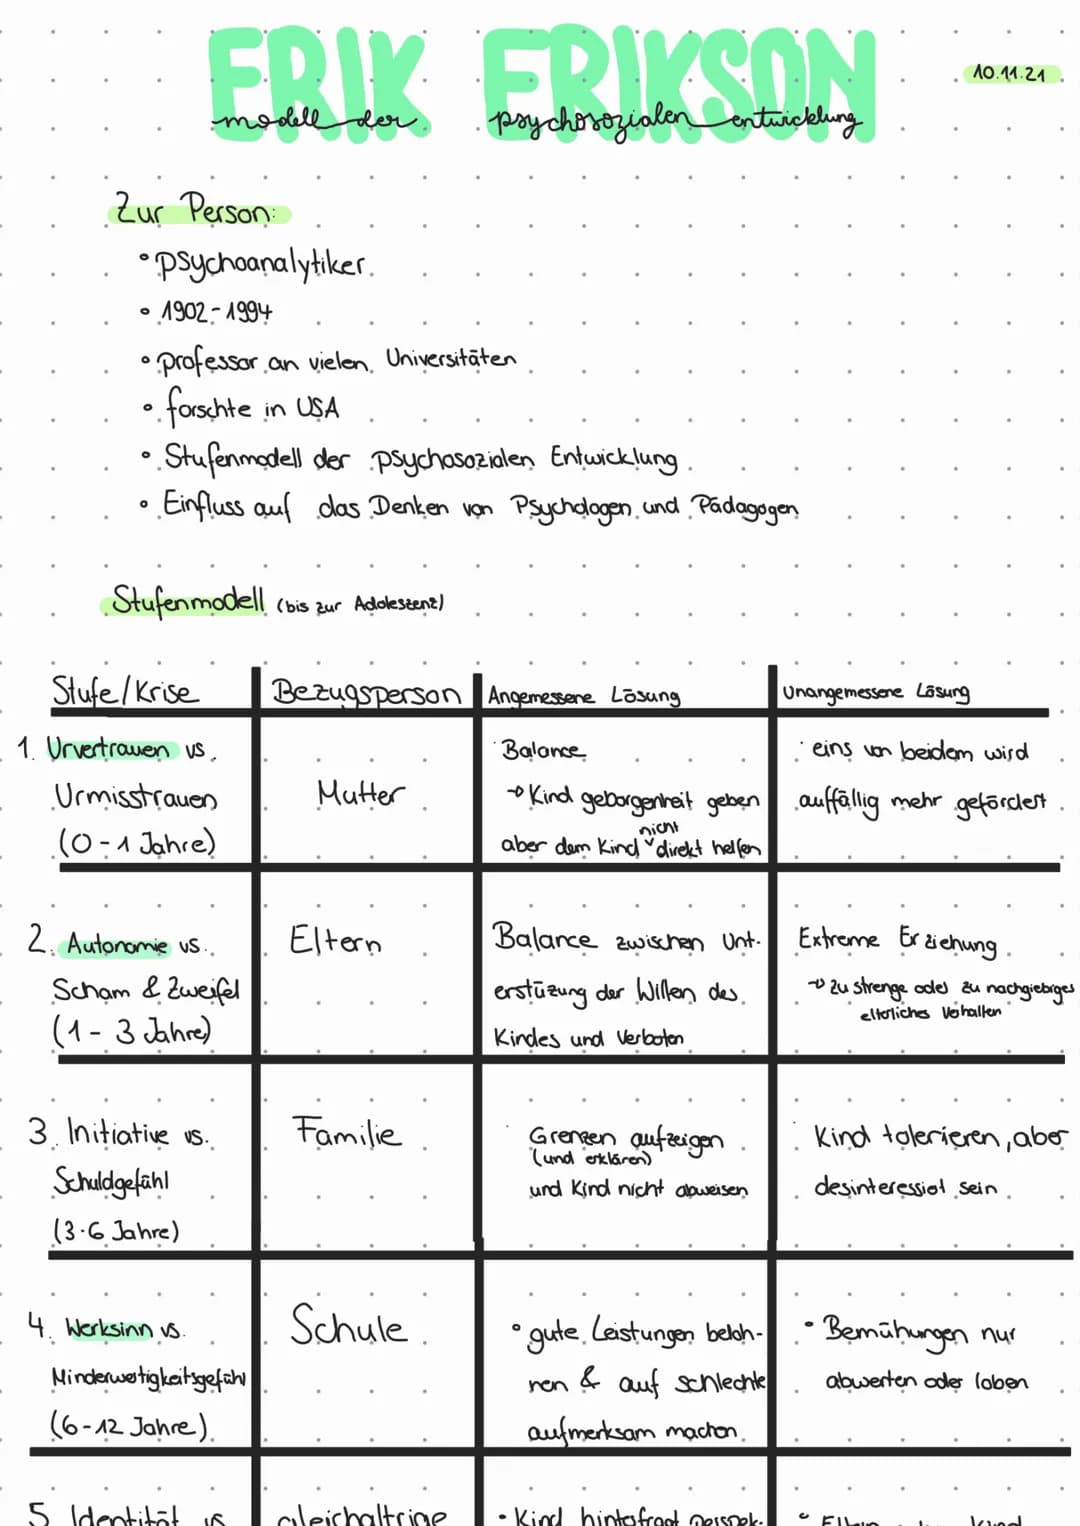 ERIK ERIKSON
10.11.21
modell der psychosozialen entwicklung
Zur Person:
• psychoanalytiker
• 1902-1994
• professor an vielen Universitäten
• forschte in USA
• Stufenmodell der psychosozialen Entwicklung
• Einfluss auf das Denken von Psychologen und Pädagogen
Stufenmodell (bis zur Adoleszenz)
Stufe/Krise
Bezugsperson
Angemessene Lösung
Unangemessene Lösung
1. Urvertrauen vs.
Urmisstrauen
(0-1 Jahre)
Mutter
Balance
→ Kind geborgenheit geben
nicht
aber dem Kind ˅ direkt helfen
• eins von beidem wird
auffällig mehr gefördert
2. Autonomie vs.
Scham & Zweifel
(1-3 Jahre)
Eltern
Balance zwischen Unt-
erstüzung der Willen des
Kindes und Verboten
Extreme Erziehung
→ zu strenge oder zu nachgiebiges
elterliches Verhalten
3. Initiative vs.
Schuldgefühl
(3-6 Jahre)
Familie
Grenzen aufzeigen
(und erklären)
und Kind nicht abweisen
Kind tolerieren, aber
desinteressiert sein
4. Werksinn vs.
Minderwertigkeitsgefühl
(6-12 Jahre)
Schule
• gute Leistungen beloh-
nen & auf schlechte
aufmerksam machen
• Bemühungen nur
abwerten oder loben
5. Identität vs
gleichaltrige
• Kind hinterfragt perspek-
• Eltern Kind